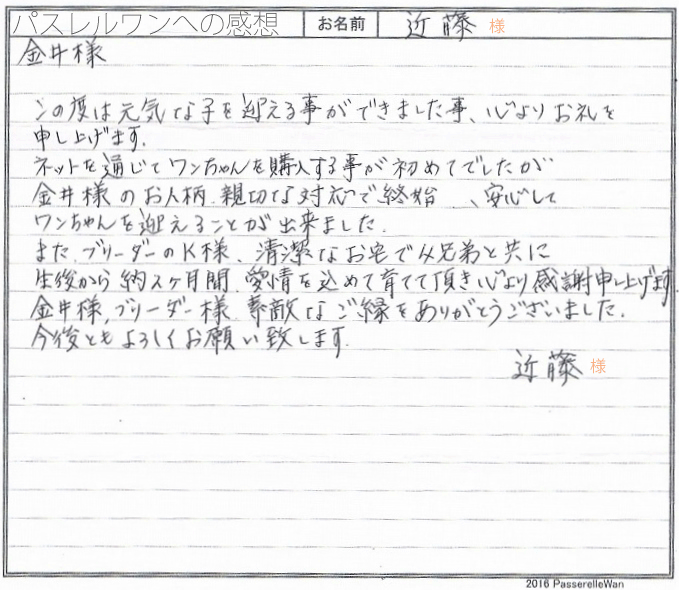 パスレルワンへの感想 お名前 近藤 様
金井様
この度は元気な子を迎える事ができました事、心よりお礼を
申し上げます.
ネットを通じてワンちゃんを購入する事が初めてでしたが
金井様のお人柄、親切な対応で終始、安心して
ワンちゃんを迎えることが出来ました.
また、ブリーダーのK様、清潔なお宅で4兄弟と共に
生後から約2ヶ月間、愛情を込めて育てて頂き心より感謝申し上げます
金井様,ブリーダー様、素敵なご縁をありがとうございました.
今後ともよろしくお願い致します.
近藤 様
2016 PasserelleWan